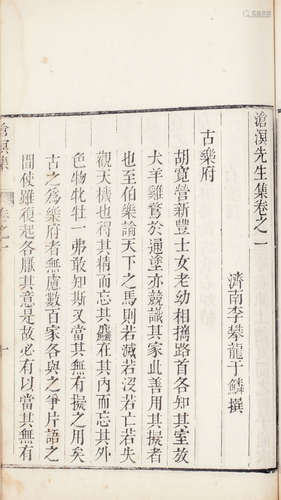 滄溟先生集卷之一
濟南李攀龍于鱗撰
古樂府
胡寬營新豐士女老幼相擕路首各知其室放
犬羊雞鶩於通塗亦競識其家此善用其擬者
也至伯樂論天下之馬則若滅若沒若亡若失
觀天機也得其精而忘其麤在其內而忘其外
色物牝牡一弗敢知斯又當其無有擬之用矣
古之為樂府者無慮數百家各與之爭片語之
間使雖復起各厭其意是故必有以當其無有
滄溟集
卷之一
一